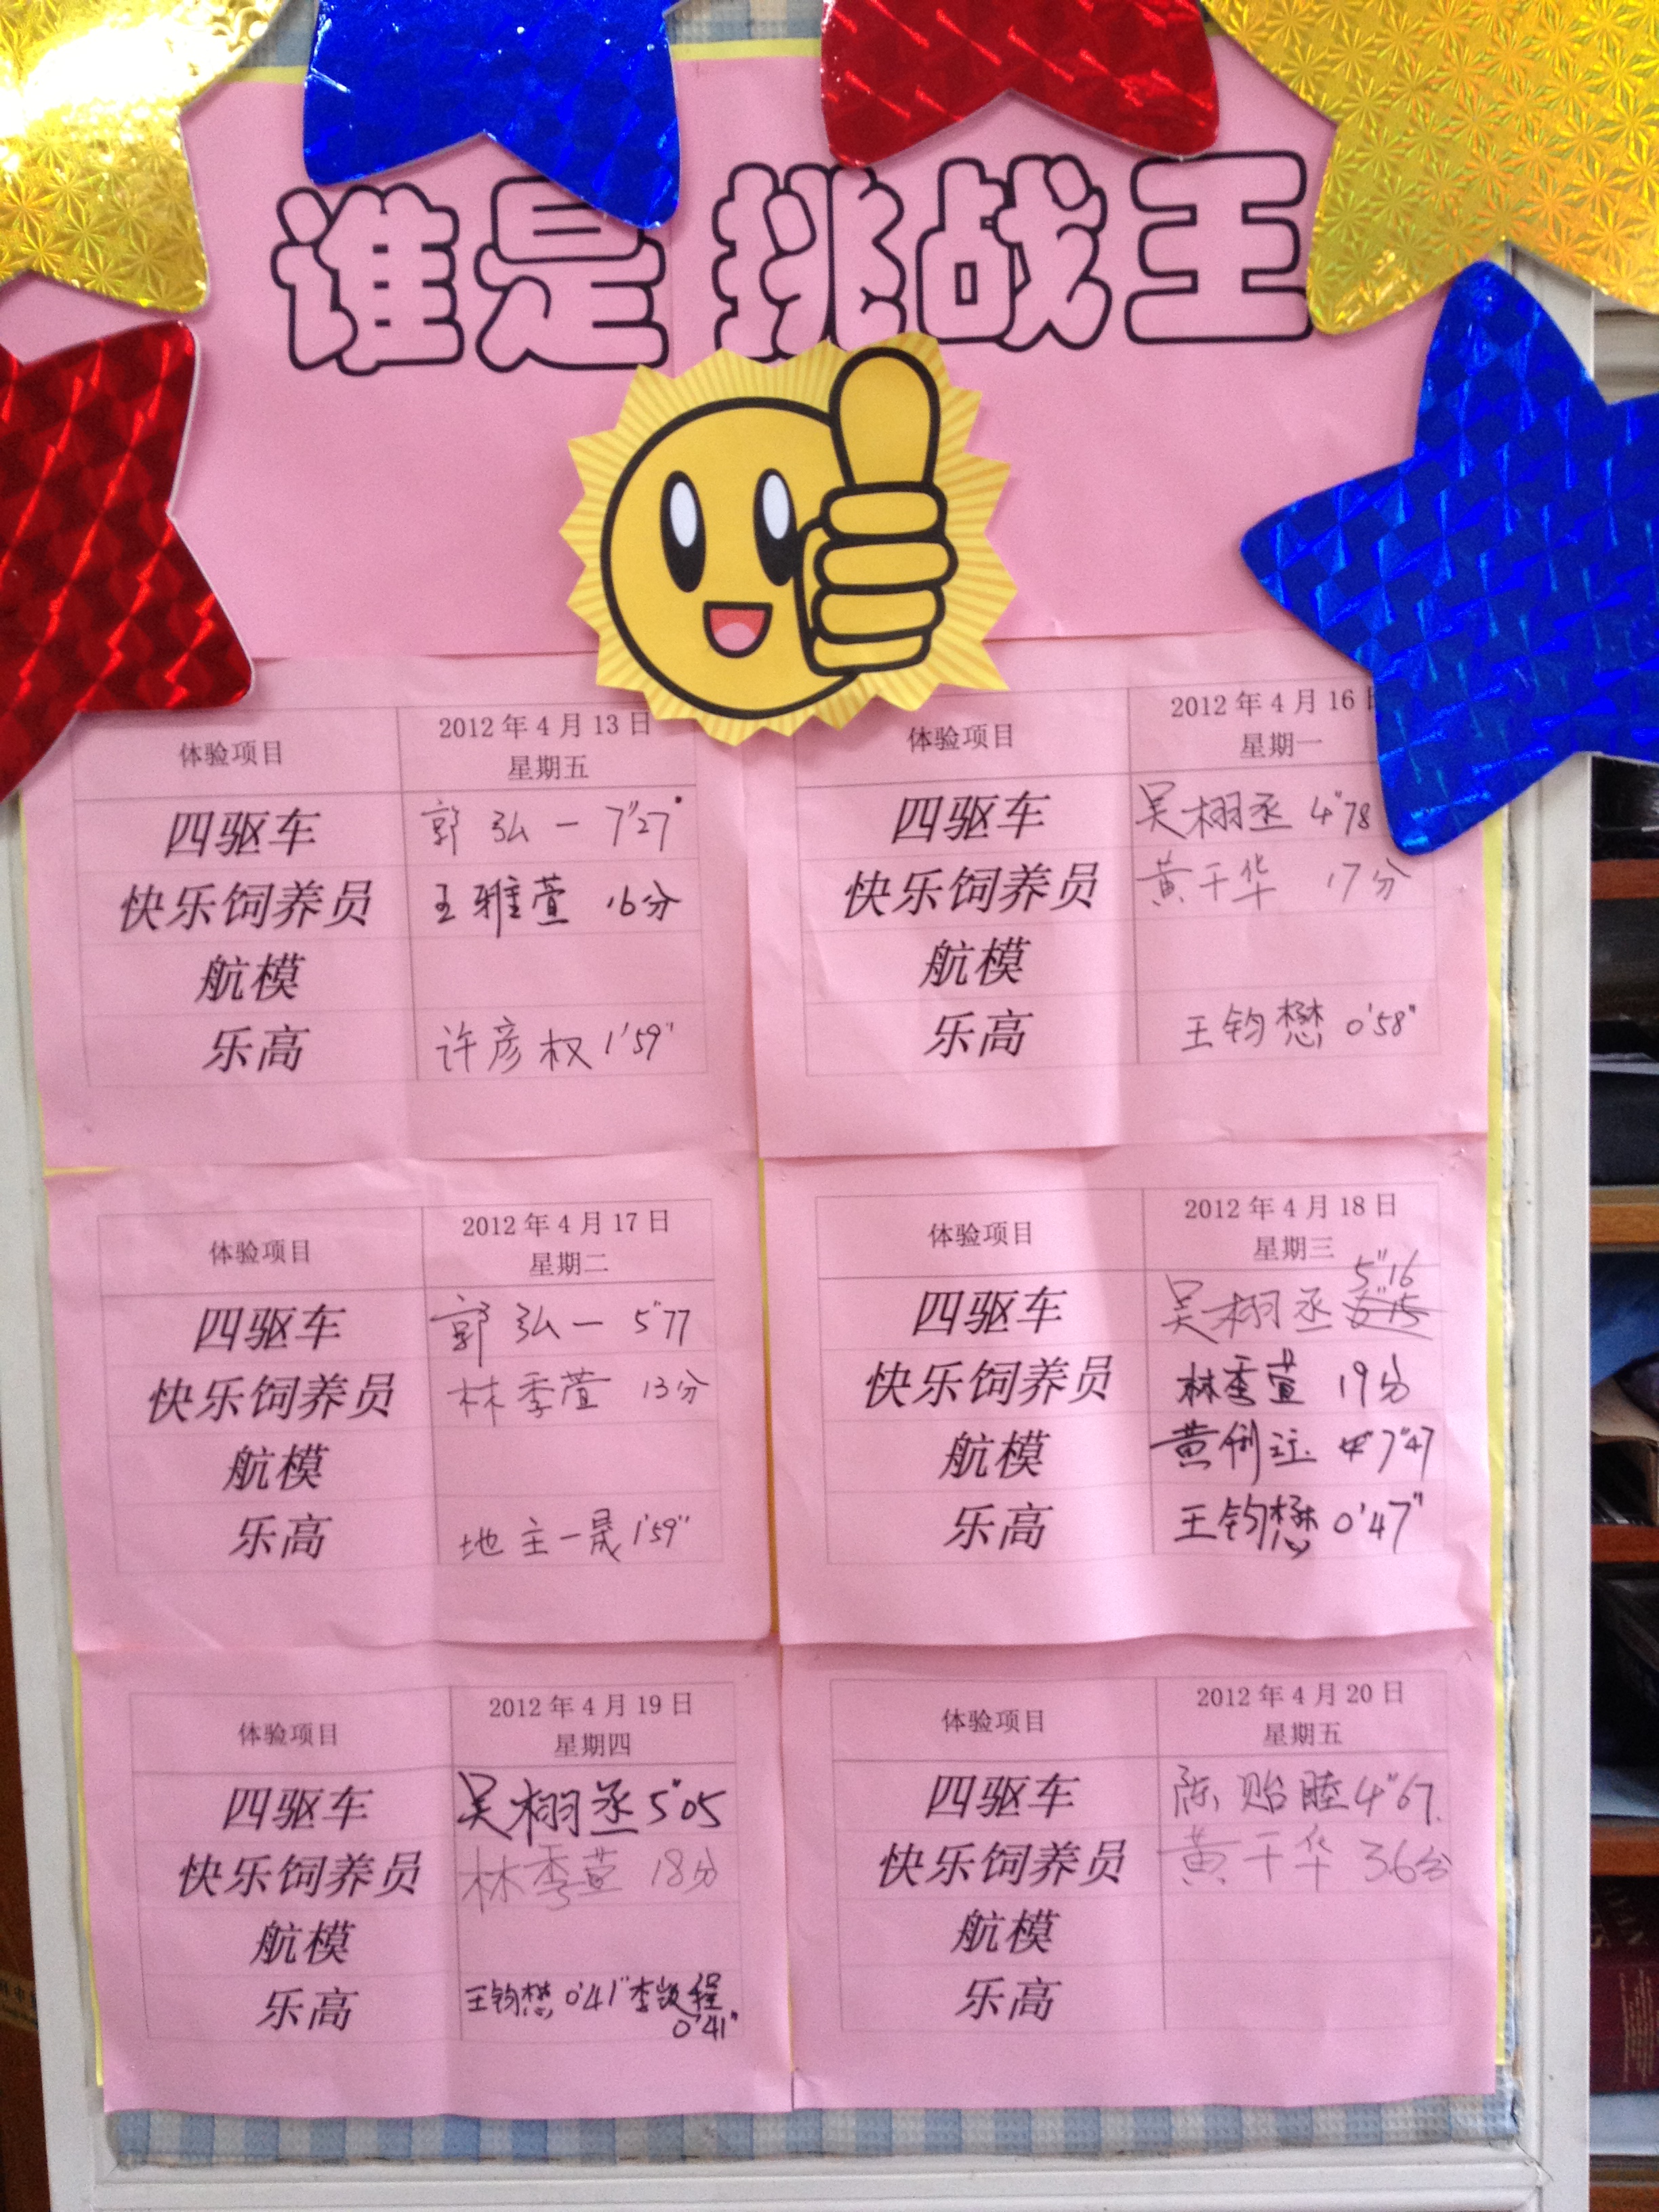 谁是挑战王
体验项目
2012年4月13日
星期五
四驱车 郭弘一 7"27
快乐饲养员 王雅萱 16分
航模
乐高 许彦权 1'59"
体验项目
2012年4月16日
星期一
四驱车 吴栩丞 4"78
快乐饲养员 黄干华 17分
航模
乐高 王钧懋 0'58"
体验项目
2012年4月17日
星期二
四驱车 郭弘一 5"77
快乐饲养员 林季萱 13分
航模
乐高 地主一晟 1'59"
体验项目
2012年4月18日
星期三
5"16
四驱车 吴栩丞
快乐饲养员 林季萱 19分
航模 黄 7"47
乐高 王钧懋 0'47"
体验项目
2012年4月19日
星期四
四驱车 吴栩丞 5"05
快乐饲养员 林季萱 18分
航模
乐高 王钧懋 0'41" 李 程
0'41"
体验项目
2012年4月20日
星期五
四驱车 陈贻睦 4"67
快乐饲养员 黄干华 36分
航模
乐高